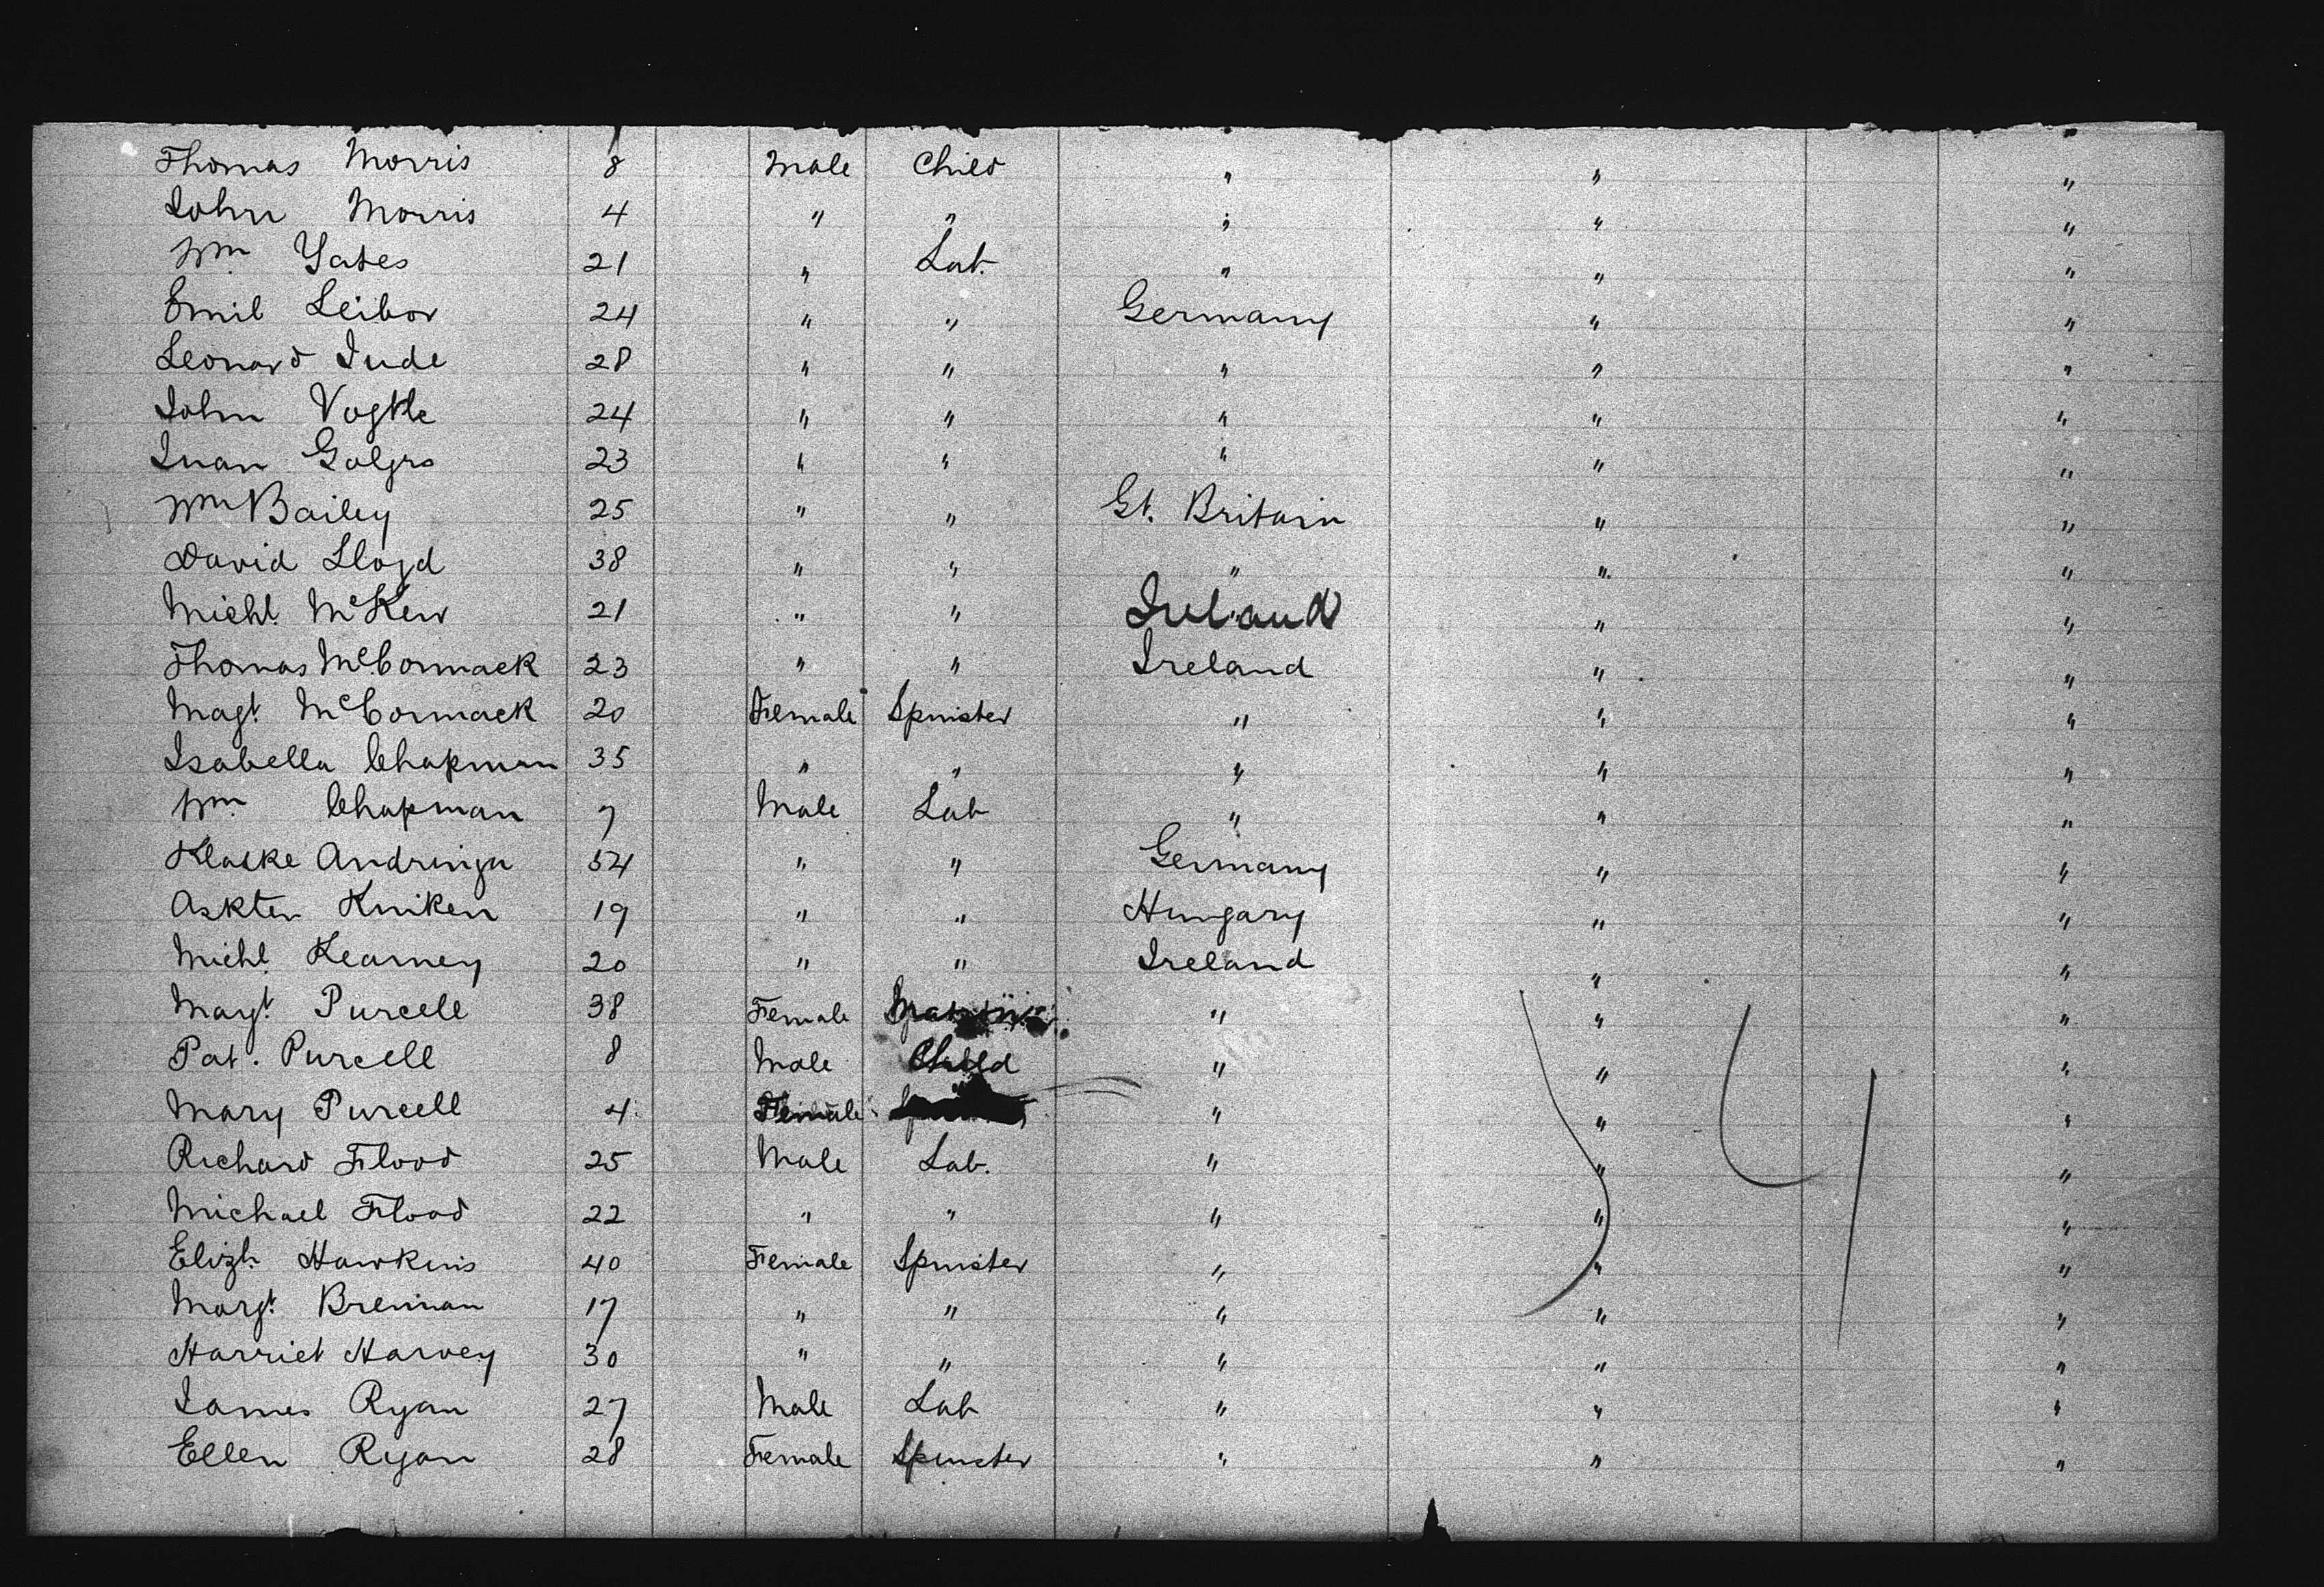 Thomas Morris 8 Male Child " " "
John Morris 4 " " " " "
Wm Yates 21 " Lab. " " "
Emil Leibor 24 " " Germany " "
Leonard Jude 28 " " " " "
John Vogtle 24 " " " " "
Juan 23 " " " " "
Wm Bailey 25 " " Gt. Britain " "
David Lloyd 38 " " " " "
Michl. McKew 21 " " Ireland " "
Thomas McCormack 23 " " Ireland " "
Magt. McCormack 20 Female Spinster " " "
Isabella Chapman 35 " " " " "
Wm Chapman 7 Male Lab " " "
Andringa 54 " " Germany " "
Kniken 19 " " Hungary " "
Michl. Kearney 20 " " Ireland " "
Magt. Purcell 38 Female " " "
Pat. Purcell 8 Male Child " " "
Mary Purcell 4 Female " " "
Richard Flood 25 Male Lab. " " "
Michael Flood 22 " " " " "
Elizh. Hawkins 40 Female Spinster " " "
Margt. Brennan 17 " " " " "
Harriet Harvey 30 " " " " "
James Ryan 27 Male Lab " " "
Ellen Ryan 28 Female Spinster " " "